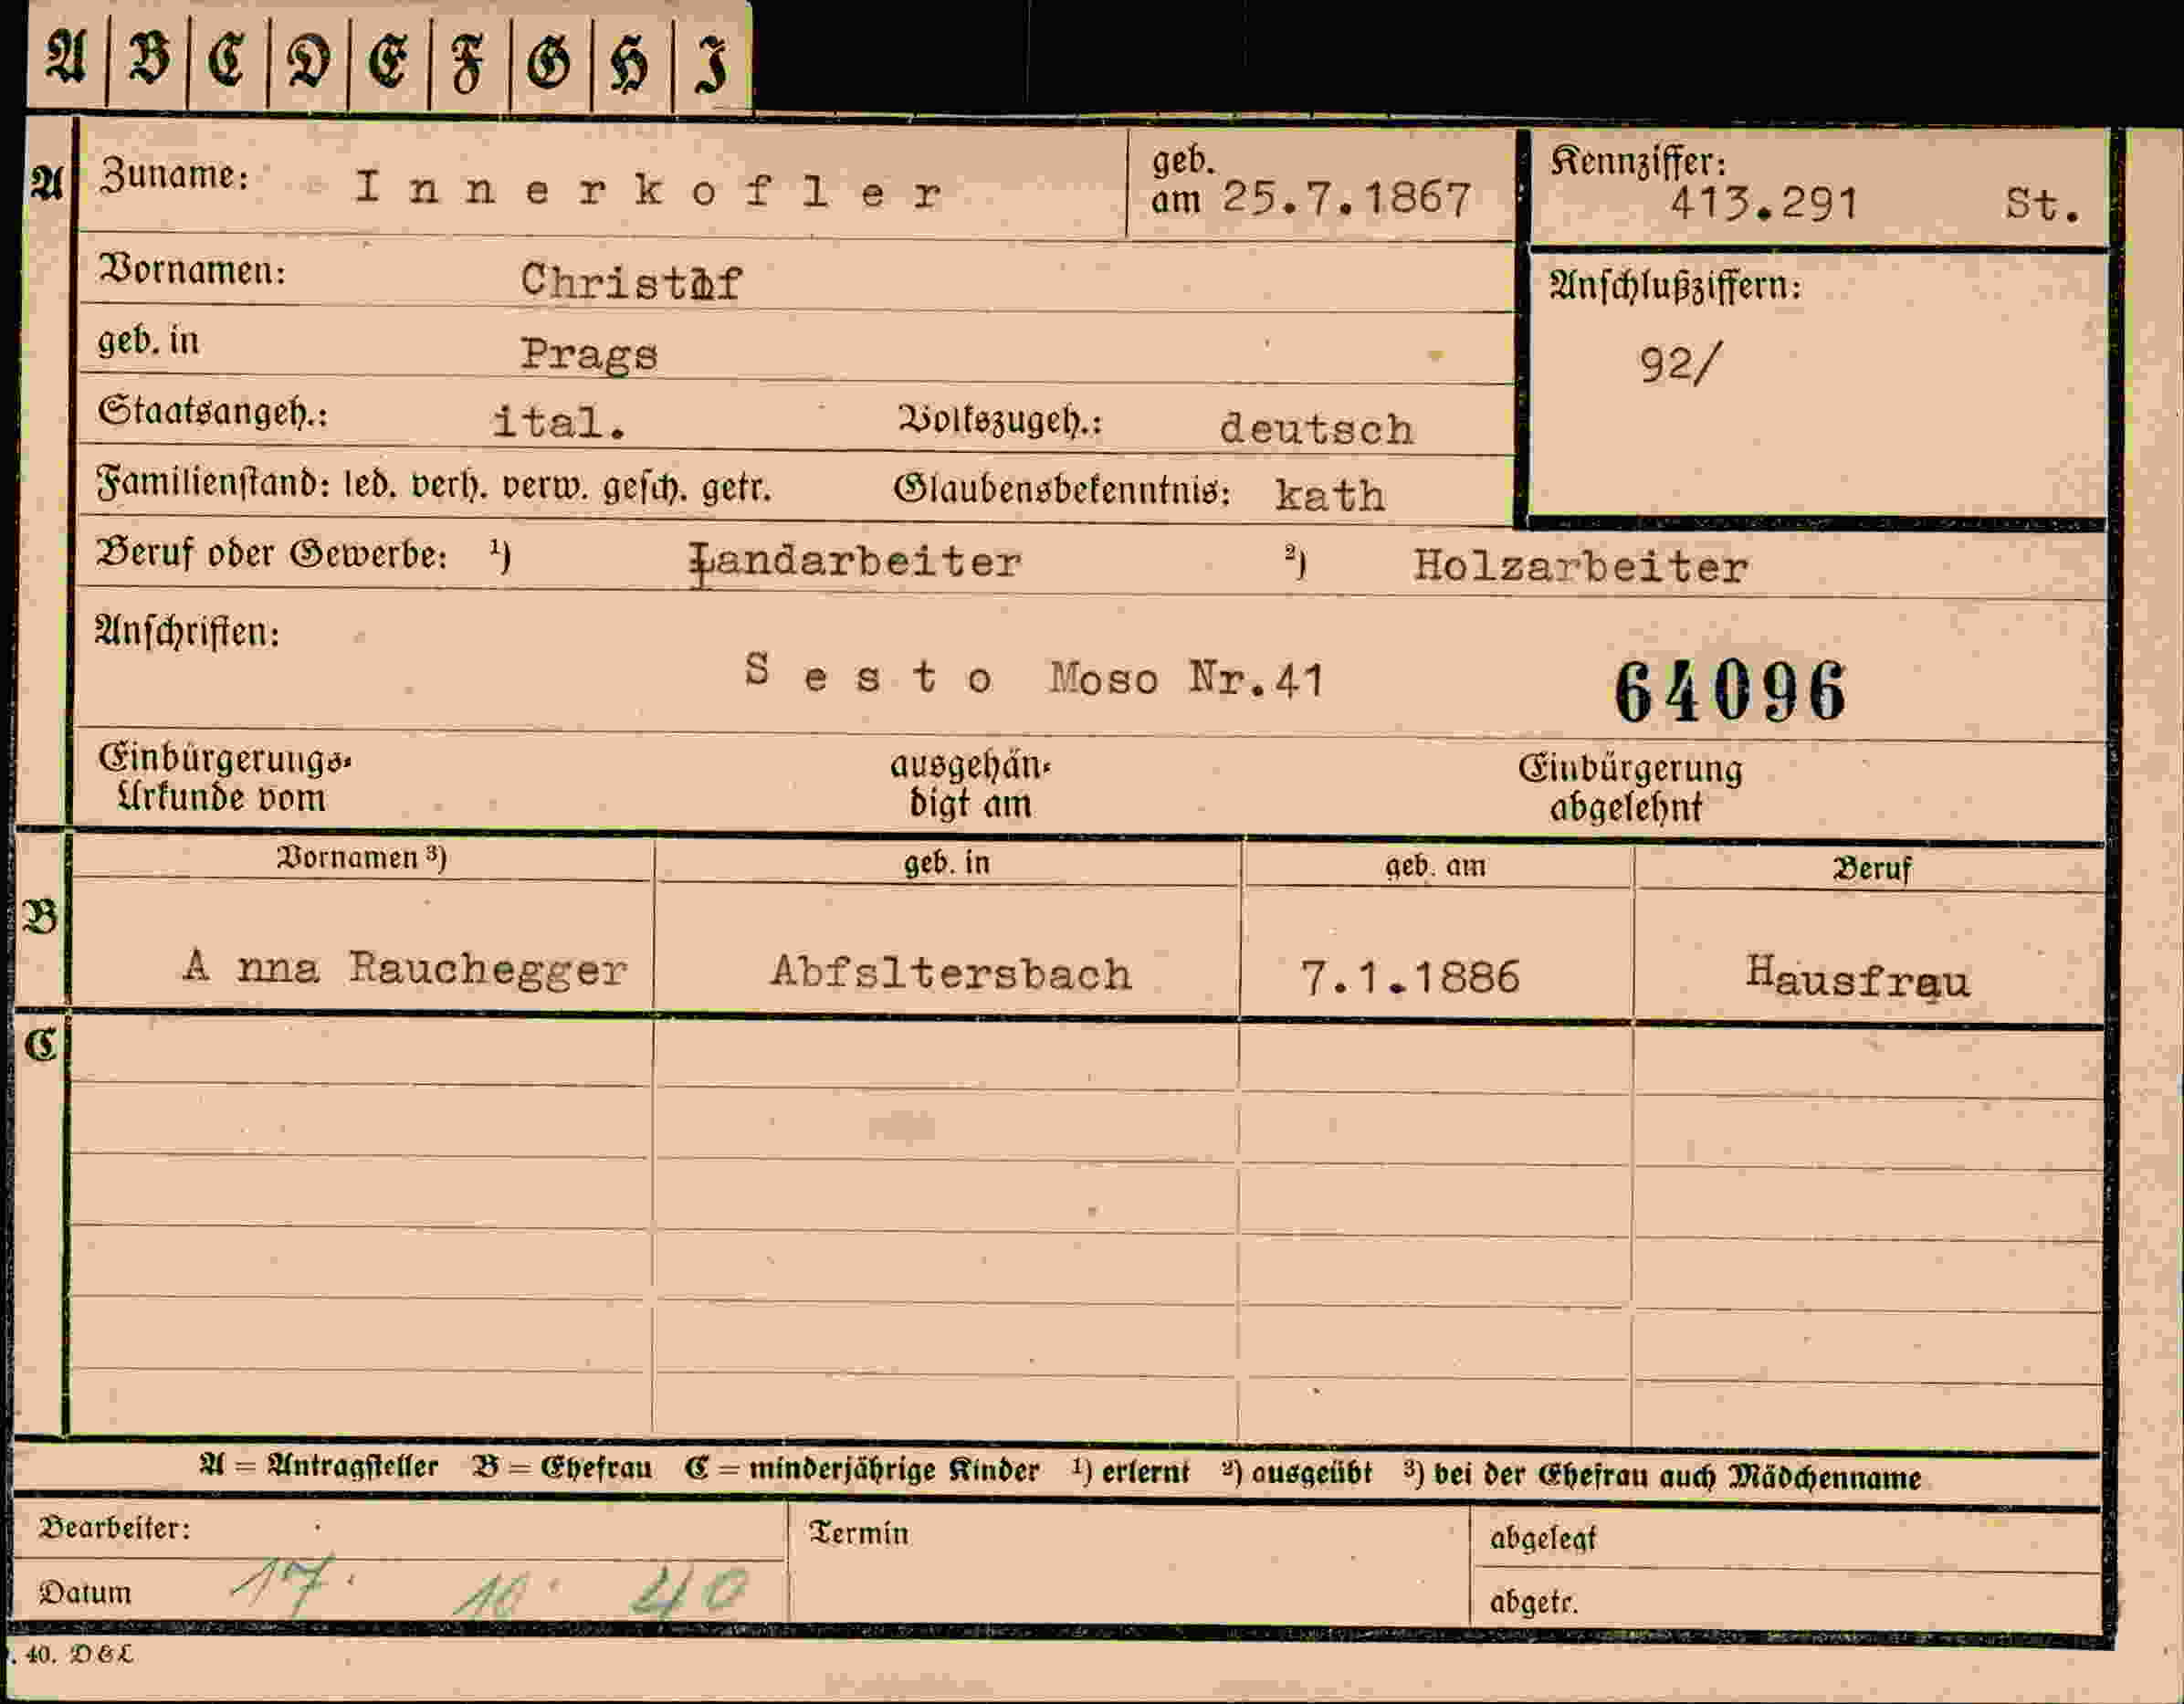 A B C D E F G H I
A Zuname: Innerkofler geb. am 25.7.1867 Kennziffer: 413.291 St.
Vornamen: Christof Anschlußziffern:
geb. in Prags 92/
Staatsangeh.: ital. Volkszugeh.: deutsch
Familienstand: led. verh. verw. gesch. getr. Glaubensbekenntnis: kath
Beruf oder Gewerbe: 1) Landarbeiter 2) Holzarbeiter
Anschriften:
Sesto Moso Nr.41 64096
Einbürgerungs- ausgehän- Einbürgerung
Urkunde vom digt am abgelehnt
Vornamen 3) geb. in geb. am Beruf
B
A nna Rauchegger Abfsltersbach 7.1.1886 Hausfrau
C
A = Antragsteller B = Ehefrau C = minderjährige Kinder 1) erlernt 2) ausgeübt 3) bei der Ehefrau auch Mädchenname
Bearbeiter: Termin abgelegt
Datum 17. 10. 40 abgetr.
. 40. D&L